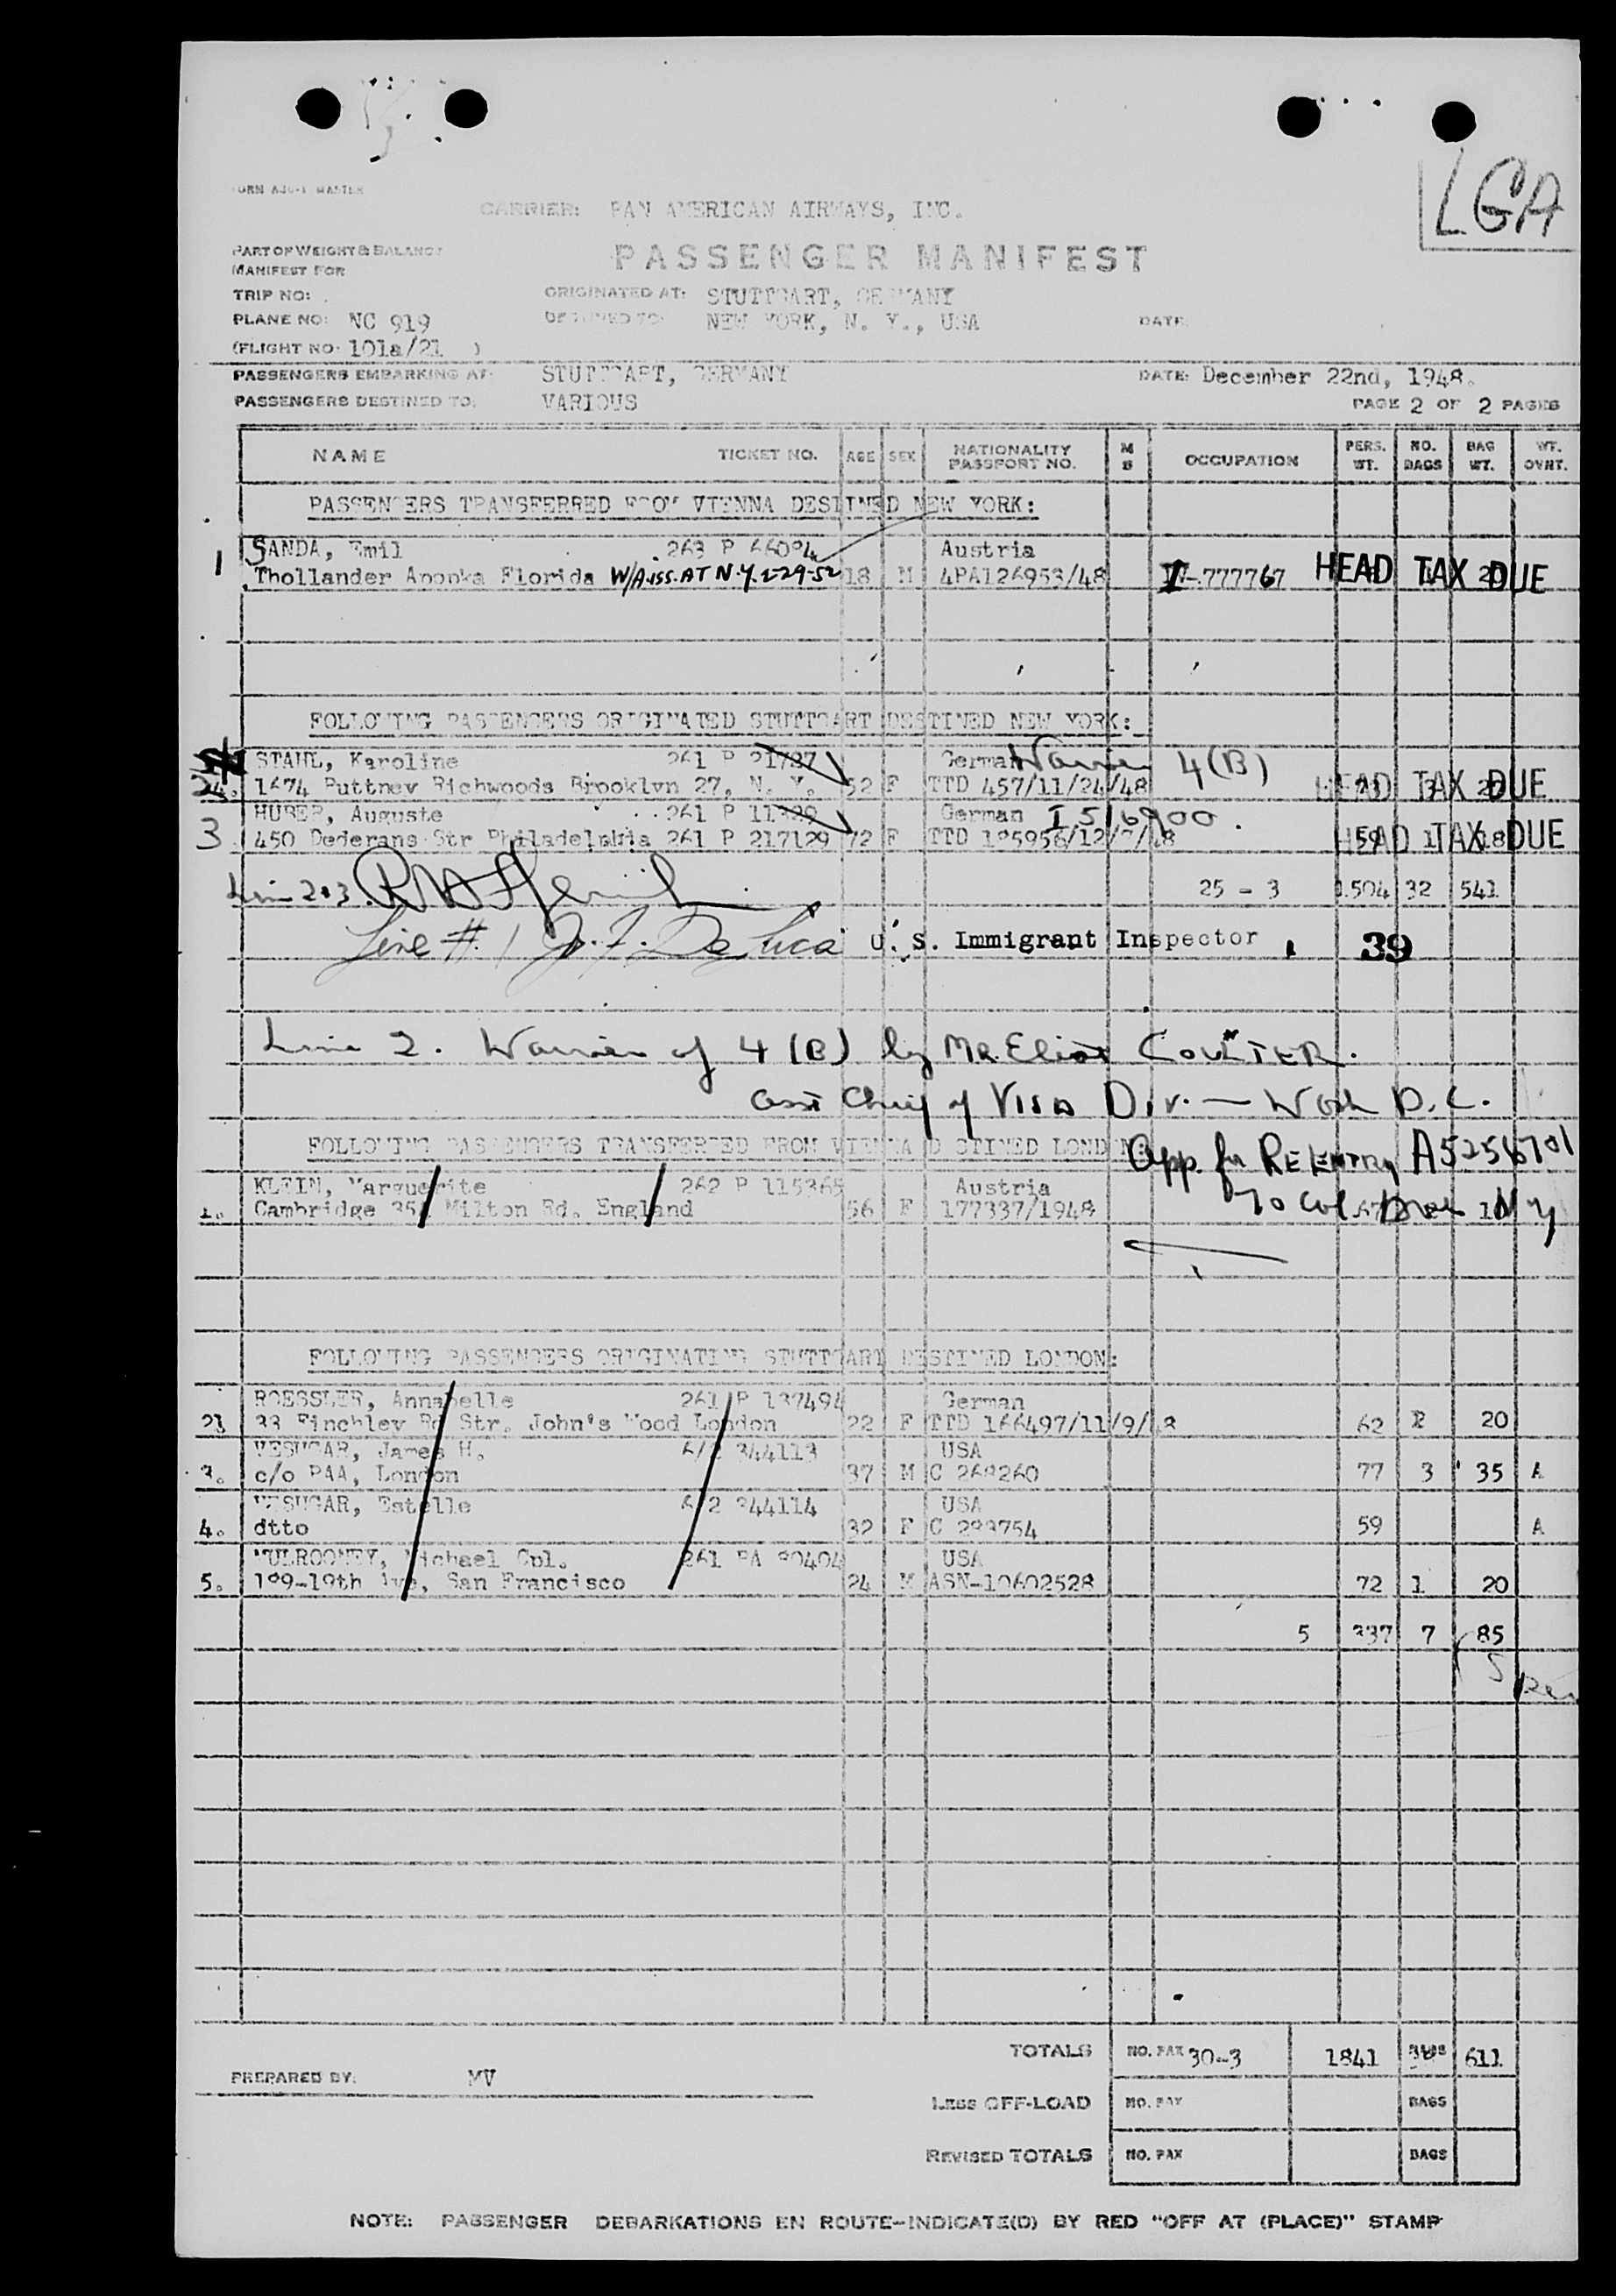 LGA
FORM
CARRIER: PAN AMERICAN AIRWAYS, INC.
PART OF WEIGHT & BALANCE
MANIFEST FOR
PASSENGER MANIFEST
TRIP NO:
ORIGINATED AT: STUTTGART, GERMANY
PLANE NO: NC 919
DESTINED TO: NEW YORK, N. Y., USA
DATE:
(FLIGHT NO. 101a/21 )
PASSENGERS EMBARKING AT: STUTTGART, GERMANY
DATE: December 22nd, 1948.
PASSENGERS DESTINED TO: VARIOUS
PAGE 2 OF 2 PAGES
NAME TICKET NO. AGE SEX NATIONALITY PASSPORT NO. M B OCCUPATION PERS. WT. NO. BAGS BAG WT. WT. OVNT.
PASSENGERS TRANSFERRED FROM VIENNA DESTINED NEW YORK:
SANDA, Emil 263 P 66094 Austria
1 Thollander Apopka Florida W/A.ISS. AT N.Y. 2-29-52 18 M 4PA126953/48 777767 HEAD TAX DUE
FOLLOWING PASSENGERS ORIGINATED STUTTGART DESTINED NEW YORK:
STAHL, Karoline 261 P German 4(B)
1674 Puttney Richwoods Brooklyn 27, N. Y. 52 F TTD 457/11/24/48 HEAD TAX DUE
HUBER, Auguste 261 P German I 516900.
3 450 Dederans Str Philadelphia 261 P 217129 72 F TTD HEAD TAX DUE
Line 2+3.
25 - 3 1504 32 541
Line # 1 J. F. De Luca U. S. Immigrant Inspector 39
Line 2. of 4 (B) by Mr. Eliot COULTER.
Asst Chief of Visa Div. — Wash D.C.
FOLLOWING PASSENGERS TRANSFERRED FROM VIENNA DESTINED LONDON:
App. for REENTRY A5256701
KLEIN, Marguerite 262 P 115365 Austria
1. Cambridge Milton Rd. England 56 F 177337/1948
FOLLOWING PASSENGERS ORIGINATING STUTTGART DESTINED LONDON:
ROESSLER, Annabelle 261 P 137494 German
33 Finchley Rd Str. John's Wood London 22 F TTD 166497/11/9/48 62 20
VESUGAR, James H. 344113 USA
3. c/o PAA, London 37 M C 268260 77 3 35 A
VESUGAR, Estelle 344114 USA
4. dtto 32 F C 59 A
MULROONEY, Michael Cpl. 261 USA
5. 189-19th Ave, San Francisco 24 M ASN-10602528 72 1 20
5 337 7 85
TOTALS NO. PAX 30-3 1841 BAGS 611
PREPARED BY: MV
LESS OFF-LOAD NO. PAX BAGS
REVISED TOTALS NO. PAX BAGS
NOTE: PASSENGER DEBARKATIONS EN ROUTE—INDICATE(D) BY RED "OFF AT (PLACE)" STAMP